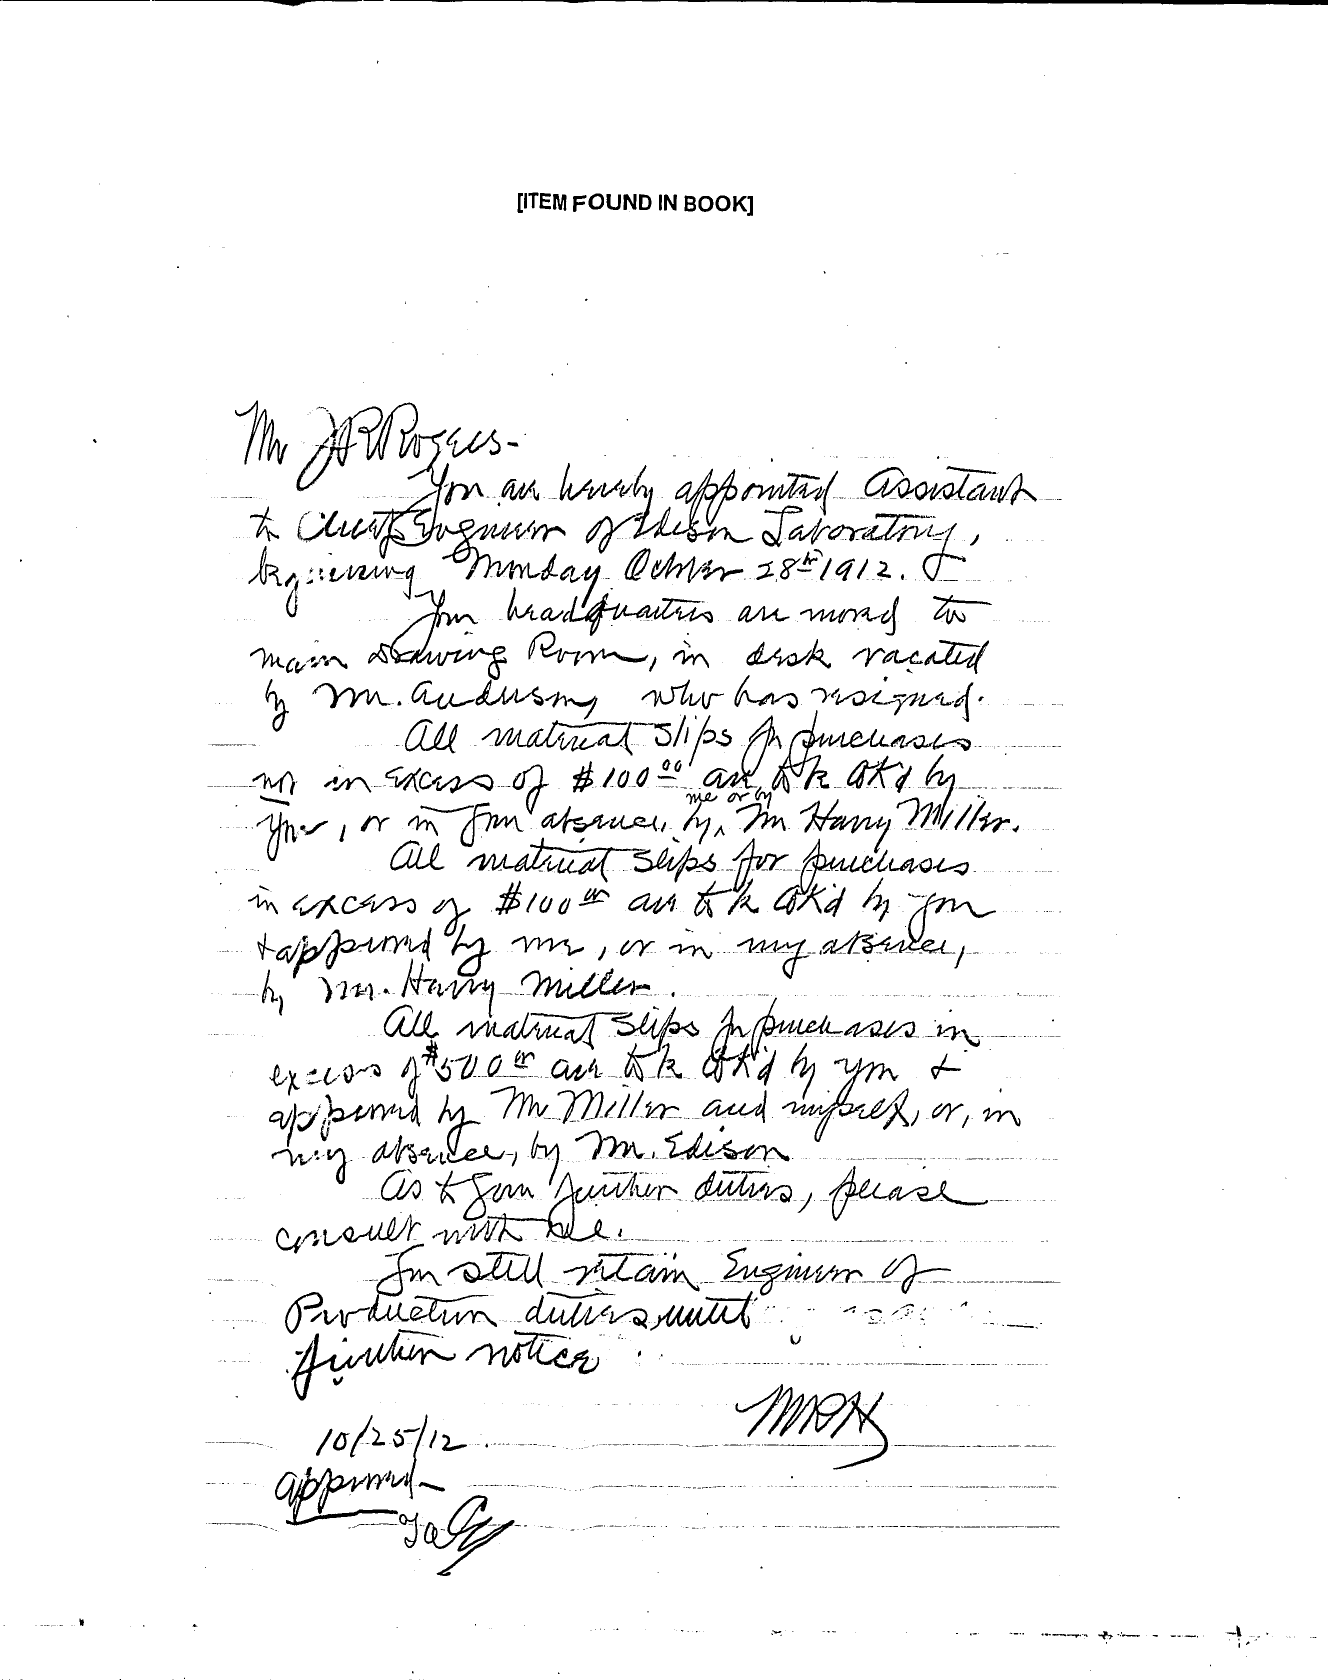 [ITEM FOUND IN BOOK]
Mr JR Rogers-
You are hereby appointed Assistant
to Chief Engineer of Edison Laboratory,
beginning Monday October 28th 1912.
Your headquarters are moved to
main Drawing Room, in desk vacated
by Mr. Anderson, who has resigned.
All material slips for purchases
not in excess of $100.00 are to be OK'd by
you, or in your absence, by Mr Harry Miller.
me or by
All material slips for purchases
in excess of $100 00 are to be OK'd by you
+ approved by me, or in my absence,
by Mr. Harry Miller.
All material slips for purchases in
excess of $500 00 are to be OK'd by you +
approved by Mr Miller and myself, or, in
my absence, by Mr. Edison
As to your further duties, please
consult with me.
You still retain Engineer of
Production duties until
further notice
MRH
10/25/12
approved-